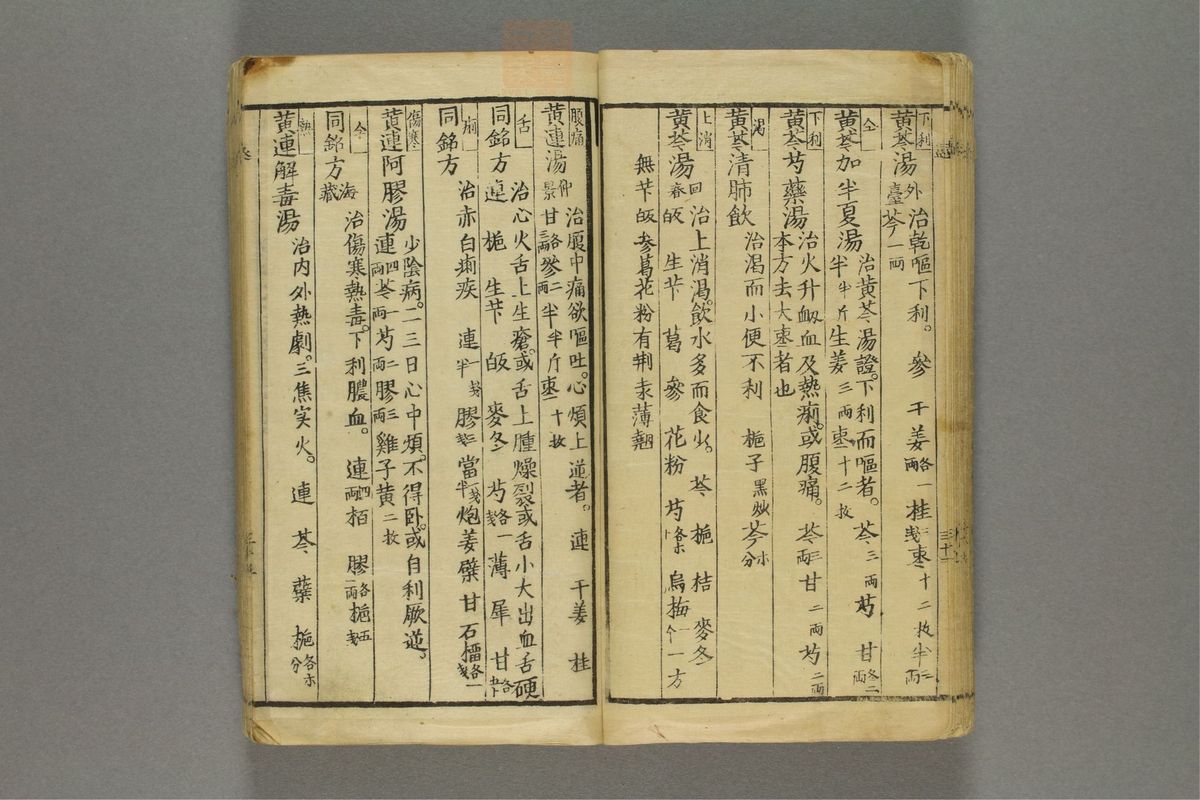 下利
黄芩湯 外臺 治乾嘔下利。 參 干姜 各一兩 桂 棗 十二枚 半 二兩
芩 一兩
仝
黄芩加半夏湯 治黄芩湯證。下利而嘔者。 芩 三兩 芍 甘 各二兩
半 半斤 生姜 三兩 棗 十二枚
下利
黄芩芍藥湯 治火升衂血及熱痢。或腹痛。 芩 三兩 甘 二兩 芍 二兩
本方去大棗者也
渇
黄芩清肺飲 治渇而小便不利 梔子 黒炒 芩
上消
黄芩湯 回春 治上消渇。飲水多而食少。 芩 梔 桔 麥冬
生芐 葛 參 花粉 芍 烏梅 一个 一方
無芐 參葛花粉有荆 薄翹
腹痛
黄連湯 仲景 治腹中痛欲嘔吐。心煩上逆者。 連 干姜 桂
甘 各三兩 參 二兩 半 半斤 棗 十枚
舌
同銘方 治心火舌上生瘡。或舌上腫燥裂或舌小大出血舌硬
連 梔 生芐 麥冬 芍 各一 薄 犀 甘
痢
同銘方 治赤白痢疾 連 膠 當 炮姜 甘 石榴
傷寒
黄連阿膠湯 少陰病。二三日心中煩。不得卧。或自利厥逆。
連 四兩 芩 一兩 芍 二兩 膠 三兩 雞子黄 二枚
仝
同銘方 海藏 治傷寒熱毒。下利膿血。 連 四兩 栢 膠 各一兩 梔
熱
黄連解毒湯 治内外熱劇。三焦实火。 連 芩 蘗 梔